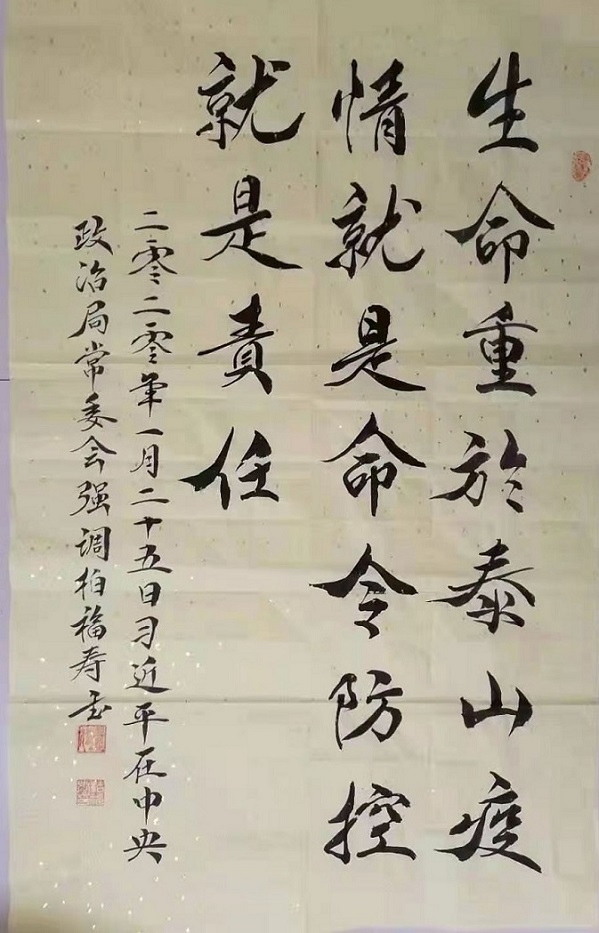 生命重於泰山疫
情就是命令防控
就是責任
二零二零年一月二十五日习近平在中央
政治局常委会强调柏福寿书